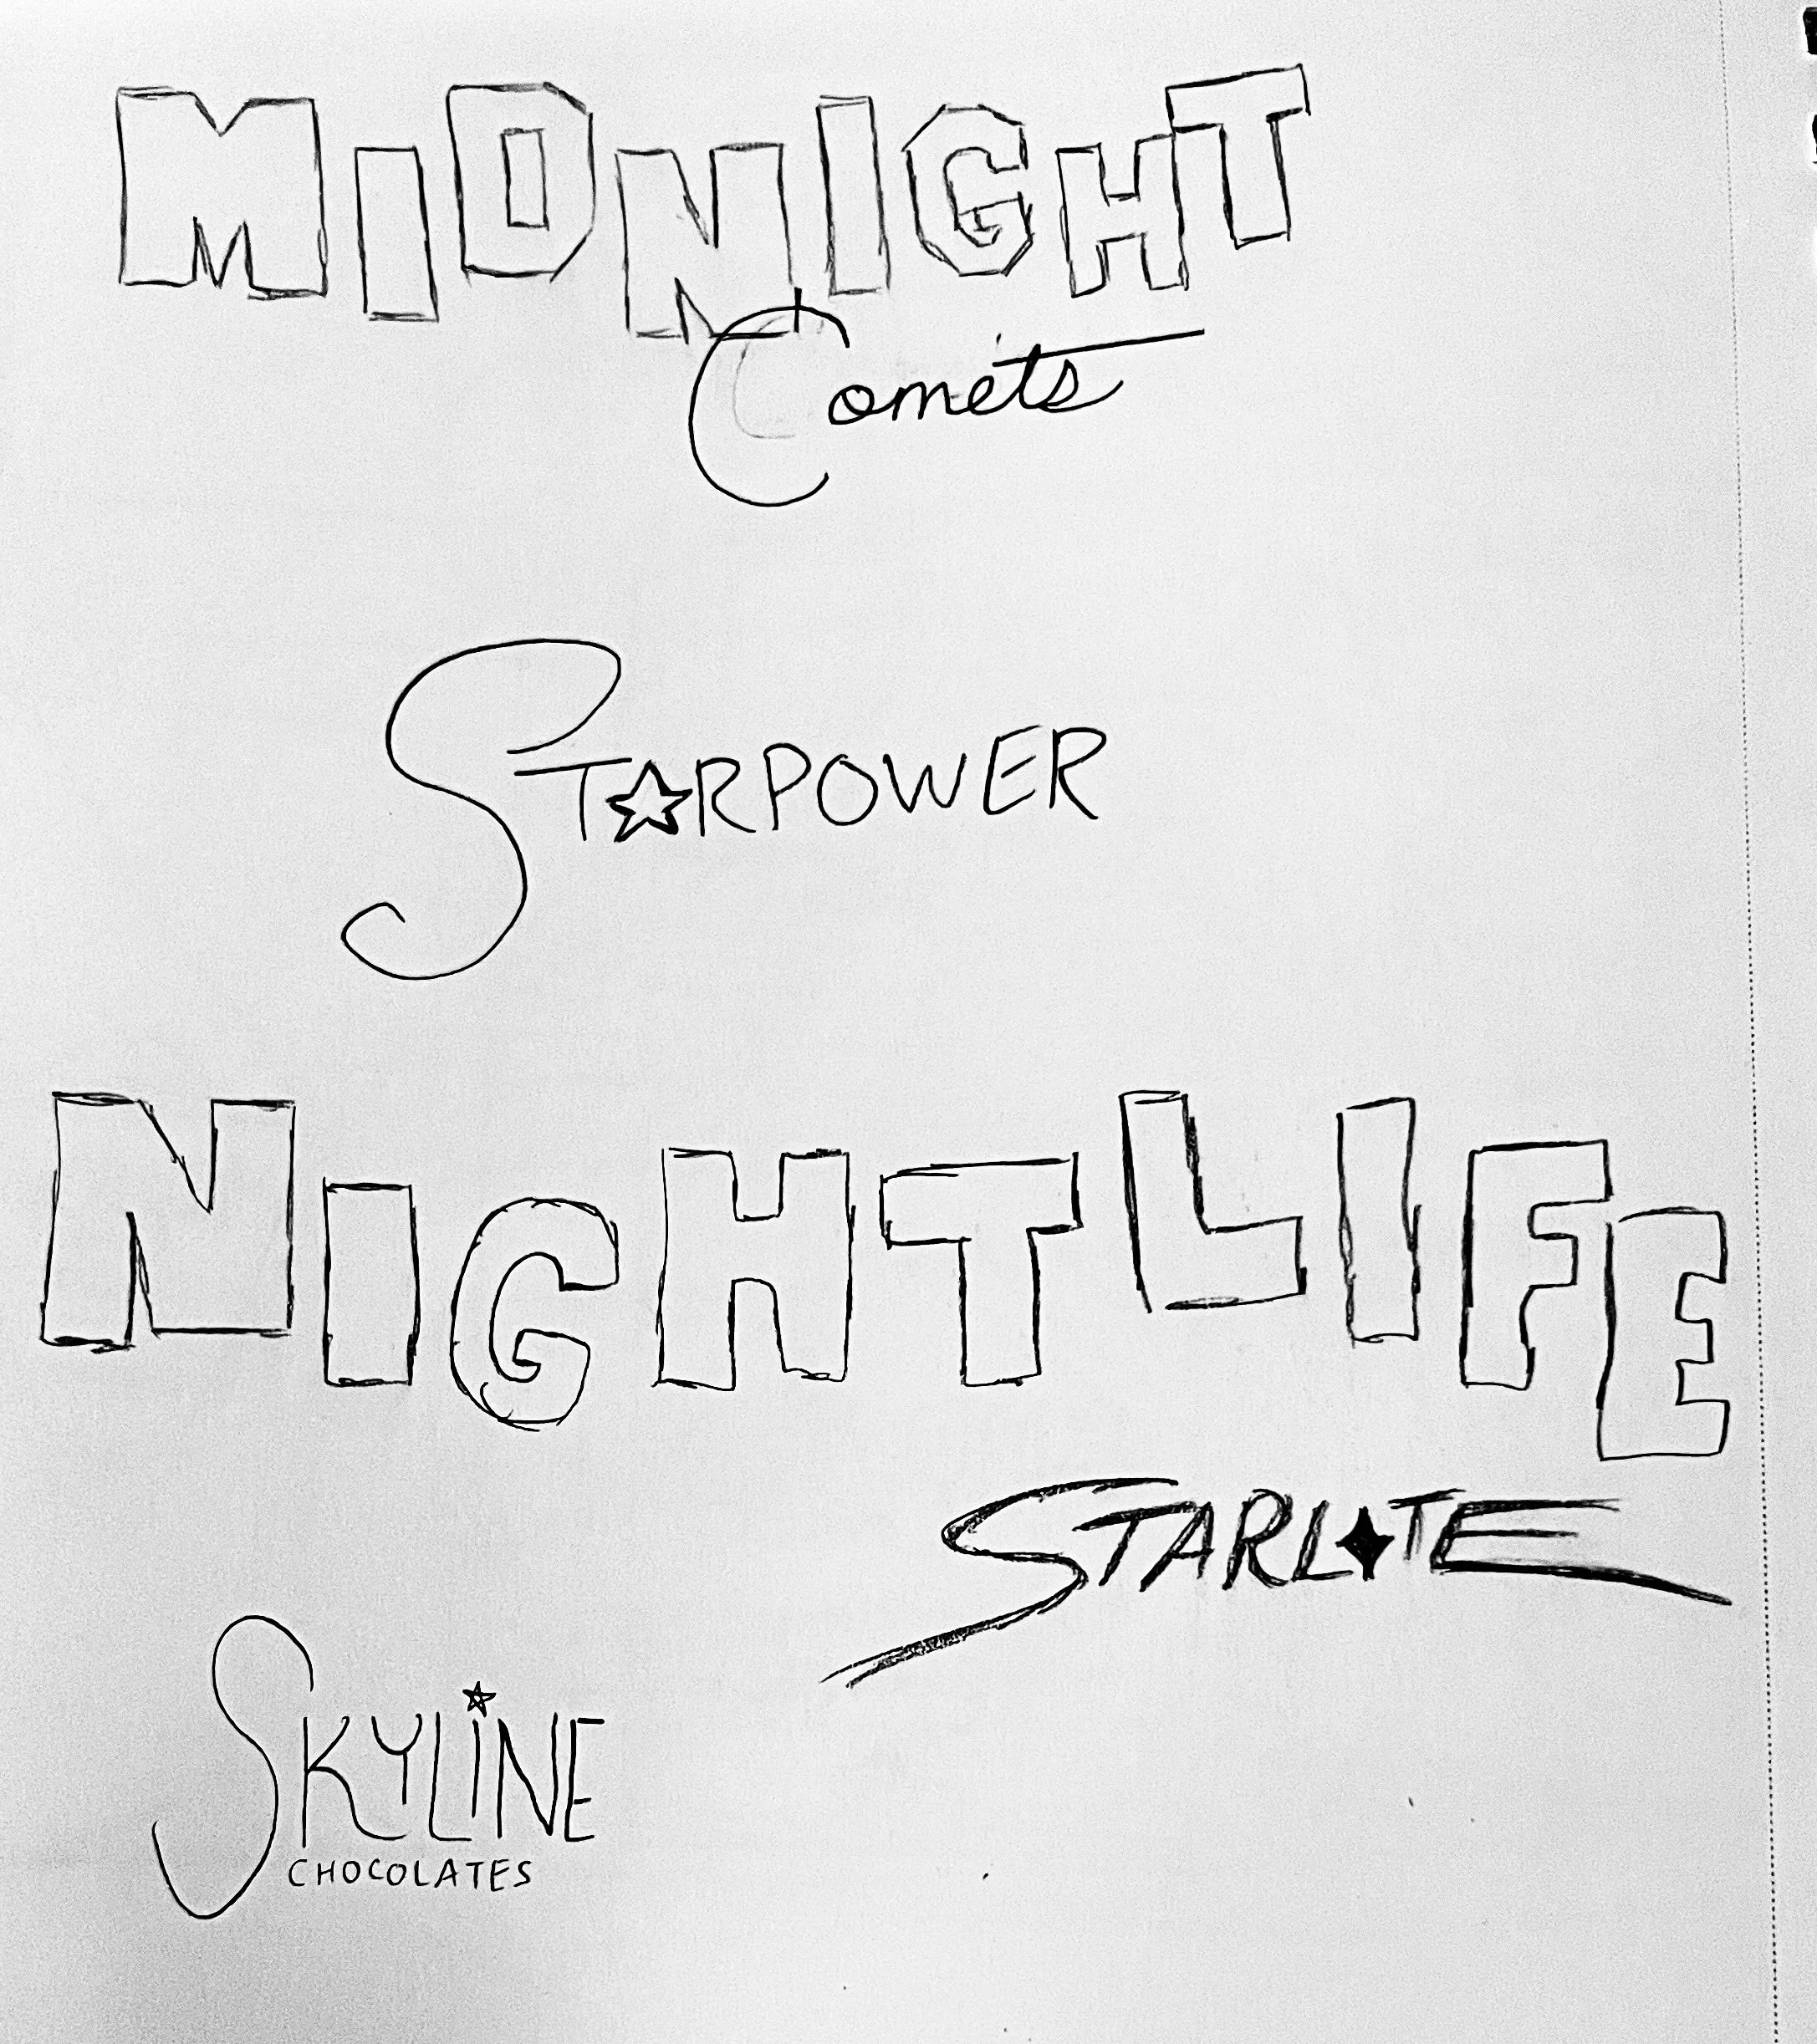 MIDNIGHT
Comets
ST☆RPOWER
NIGHTLIFE
STARL✦TE
SKYLINE
CHOCOLATES